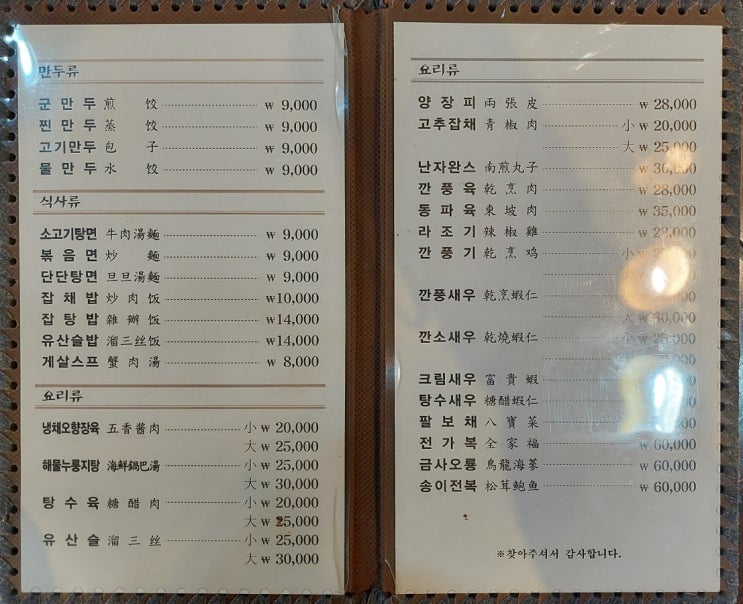 만두류
군만두 煎餃 ₩ 9,000
찐만두 蒸餃 ₩ 9,000
고기만두 包子 ₩ 9,000
물만두 水餃 ₩ 9,000
식사류
소고기탕면 牛肉湯麵 ₩ 9,000
볶음면 炒麵 ₩ 9,000
단단탕면 旦旦湯麵 ₩ 9,000
잡채밥 炒肉饭 ₩10,000
잡탕밥 雜辦饭 ₩14,000
유산슬밥 溜三丝饭 ₩14,000
게살스프 蟹肉湯 ₩ 8,000
요리류
냉채오향장육 五香醬肉 小 ₩ 20,000
大 ₩ 25,000
해물누룽지탕 海鮮鍋巴湯 小 ₩ 25,000
大 ₩ 30,000
탕수육 糖醋肉 小 ₩ 20,000
大 ₩ 25,000
유산슬 溜三丝 小 ₩ 25,000
大 ₩ 30,000
요리류
양장피 兩張皮 ₩ 28,000
고추잡채 青椒肉 小 ₩ 20,000
大 ₩ 25,000
난자완스 南煎丸子 ₩ 30,000
깐풍육 乾烹肉 ₩ 28,000
동파육 東坡肉 ₩ 35,000
라조기 辣椒雞 ₩ 28,000
깐풍기 乾烹鸡 小 ₩
깐풍새우 乾烹蝦仁
大 ₩ 30,000
깐소새우 乾燒蝦仁 小 ₩ 25,000
크림새우 富貴蝦
탕수새우 糖醋蝦仁
팔보채 八寶菜
전가복 全家福 ₩ 60,000
금사오룡 烏龍海蔘 ₩ 60,000
송이전복 松茸鮑鱼 ₩ 60,000
※찾아주셔서 감사합니다.